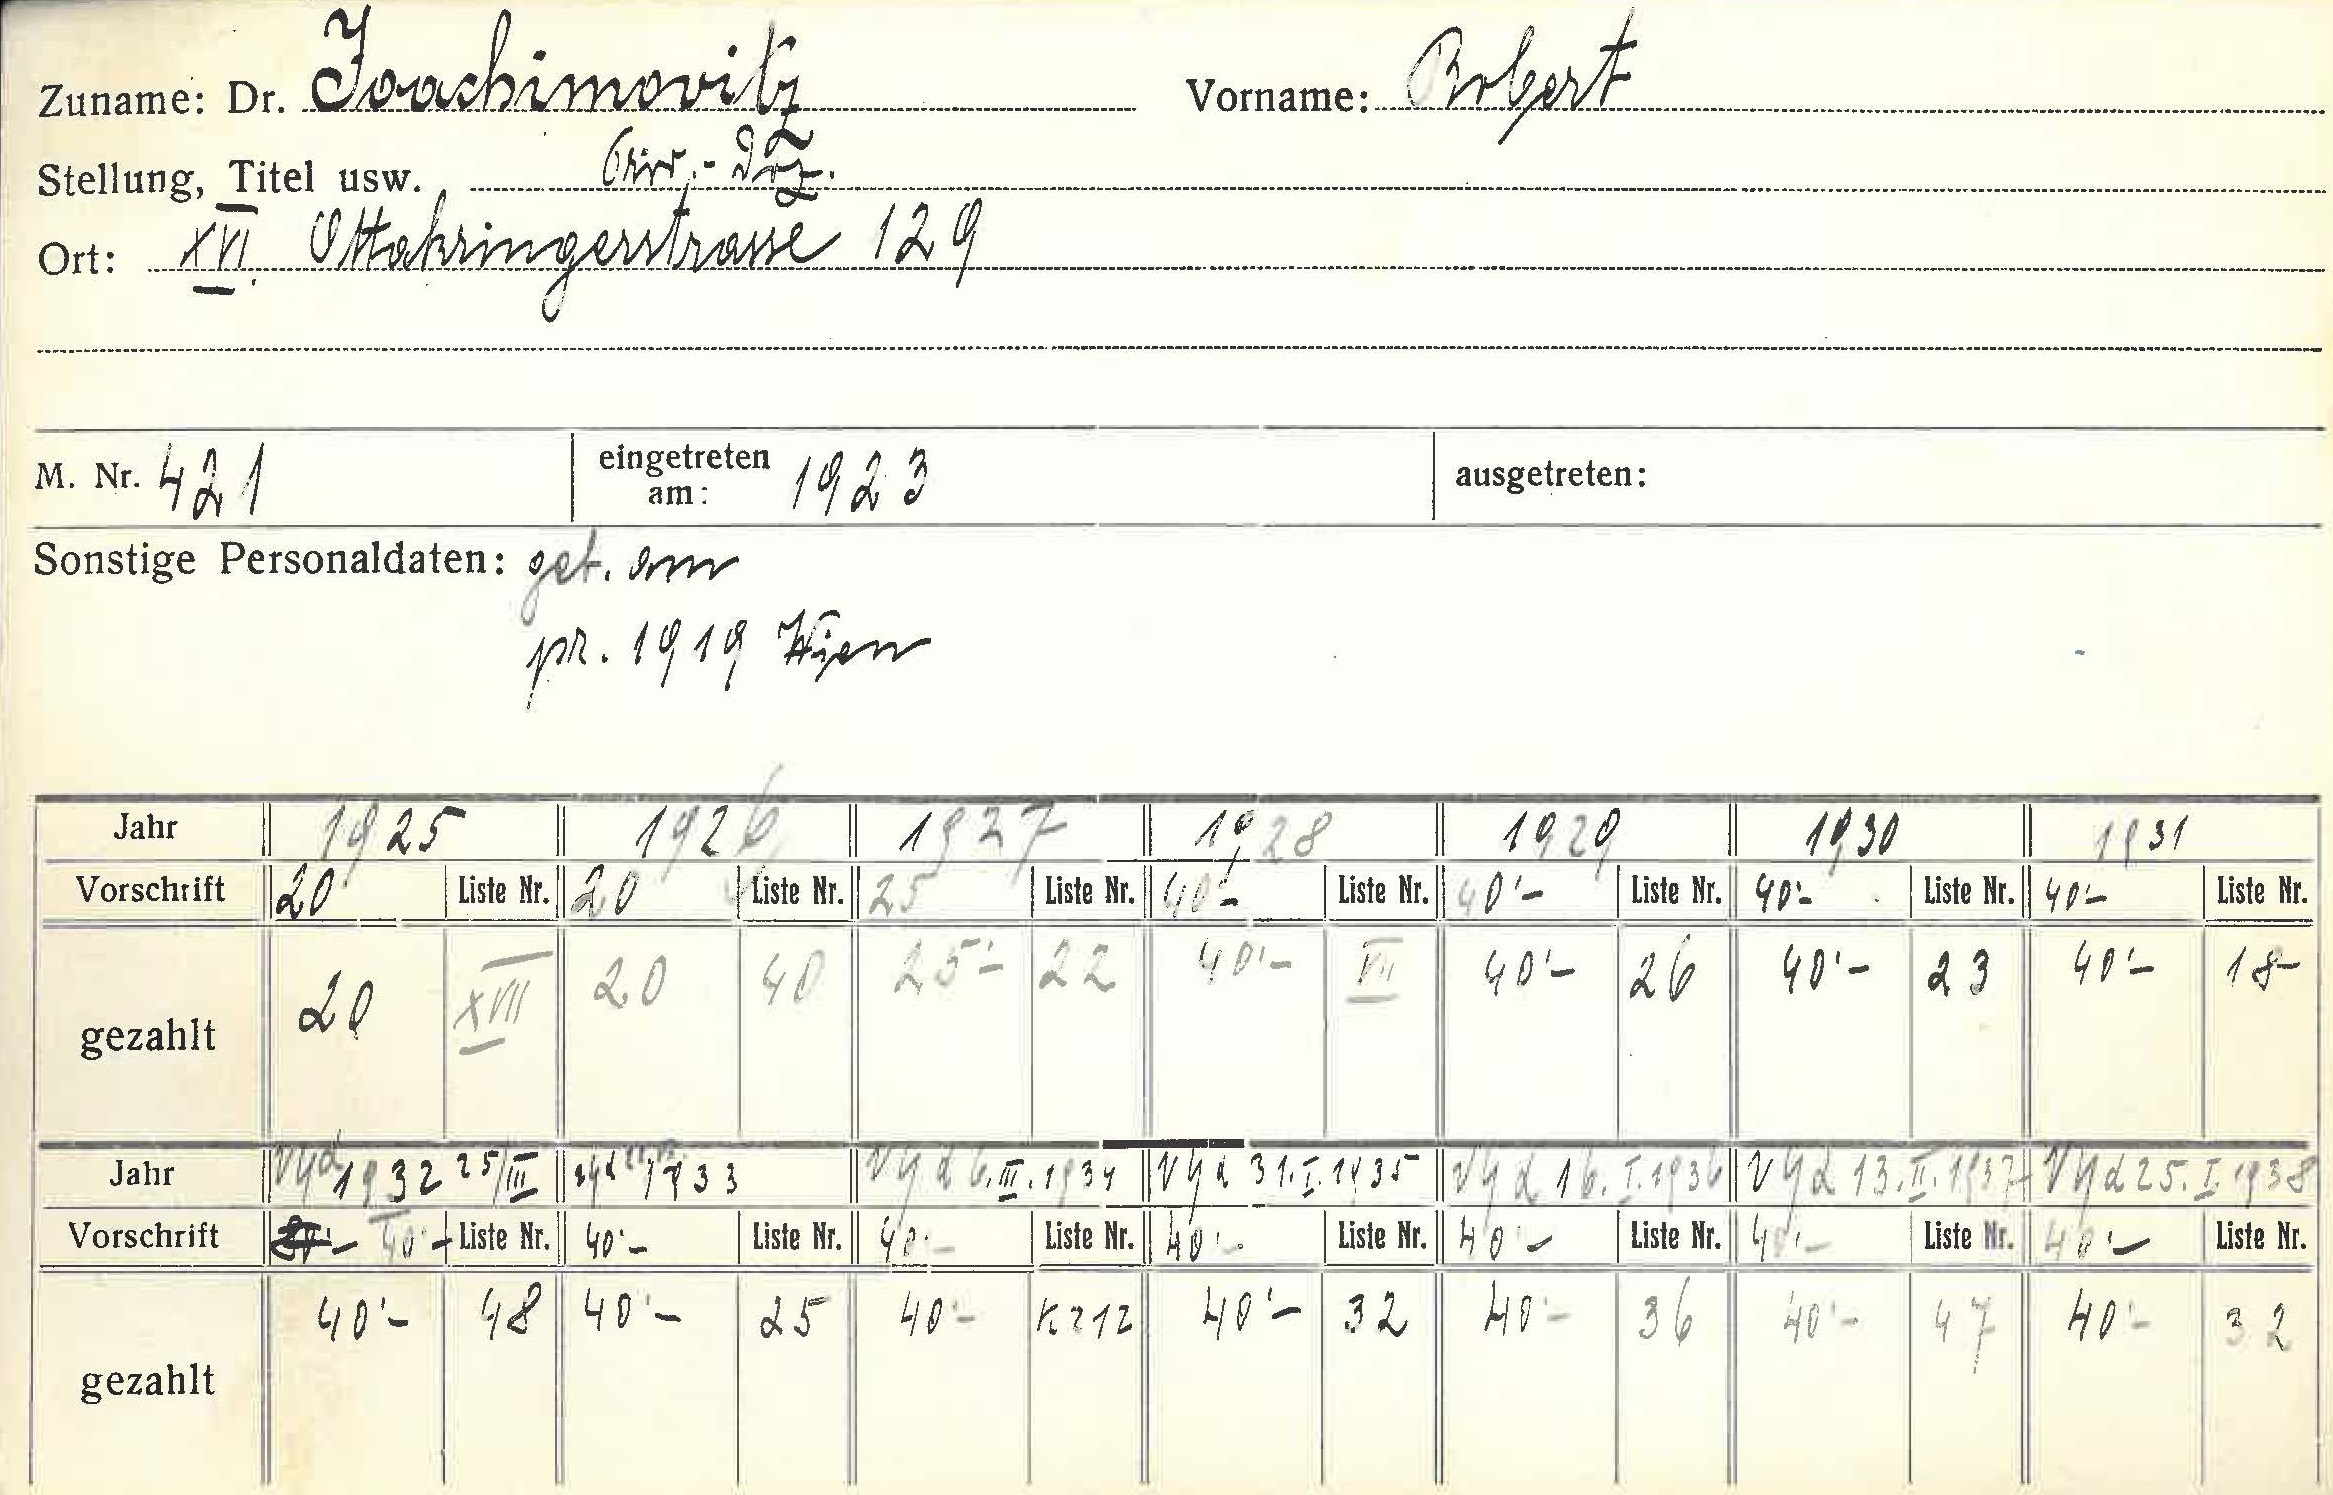 Zuname: Dr. Joachimovitz Vorname: Robert
Stellung, Titel usw. Priv.-Doz.
Ort: XVI. Ottakringerstrasse 129
M. Nr. 421 eingetreten am: 1923 ausgetreten:
Sonstige Personaldaten: geb. am
pr. 1919 Wien
Jahr 1925 1926 1927 1928 1929 1930 1931
Vorschrift 20 Liste Nr. 20 Liste Nr. 25 Liste Nr. 40'- Liste Nr. 40'- Liste Nr. 40'- Liste Nr. 40'- Liste Nr.
gezahlt 20 XVII 20 40 25'- 22 40'- VII 40'- 26 40'- 23 40'- 18
Jahr Vgd 1932 25/III Vgd 1933 Vgd 6.III.1934 Vgd 31.I.1935 Vgd 16.I.1936 Vgd 13.II.1937 Vgd 25.I.1938
Vorschrift 40'- Liste Nr. 40'- Liste Nr. 40'- Liste Nr. 40'- Liste Nr. 40'- Liste Nr. 40'- Liste Nr. 40'- Liste Nr.
gezahlt 40'- 48 40'- 25 40'- K212 40'- 32 40'- 36 40'- 47 40'- 32